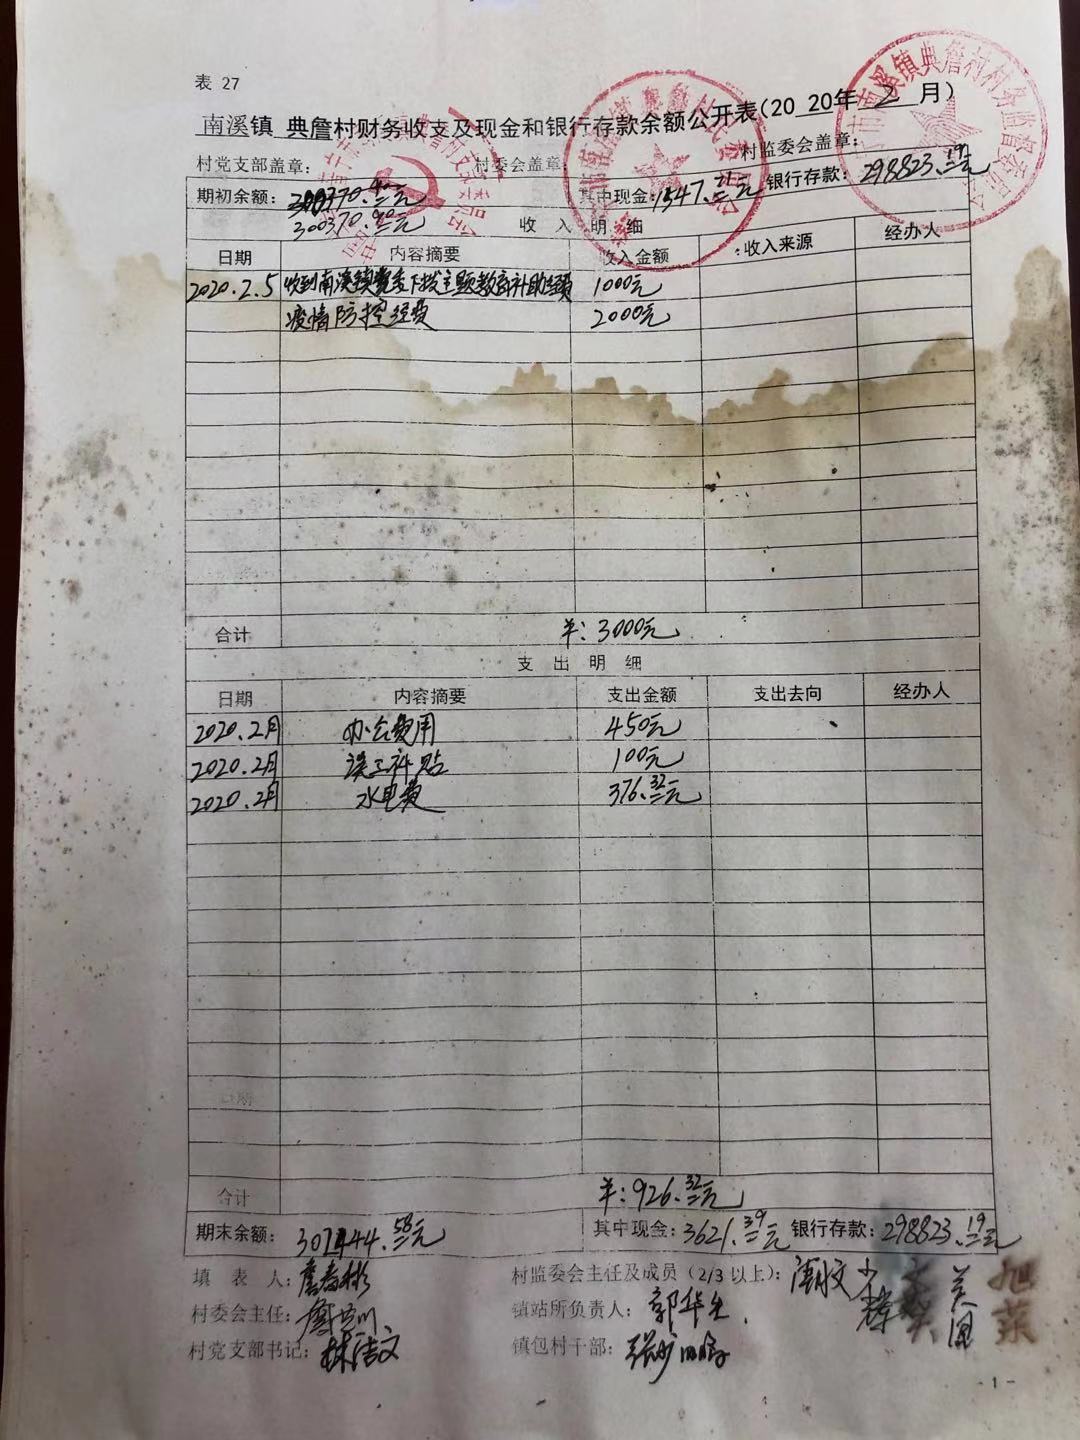 表 27
南溪镇 典詹村财务收支及现金和银行存款余额公开表(2020年 2 月)
村党支部盖章: 村委会盖章: 村监委会盖章:
期初余额: 300370.40元 其中现金: 1547.21元 银行存款: 298823.19元
300370.40元
收 入 明 细
日期 内容摘要 收入金额 收入来源 经办人
2020.2.5 收到南溪镇党委下拨主题教育补助经费 1000元
疫情防控经费 2000元
合计 羊: 3000元
支 出 明 细
日期 内容摘要 支出金额 支出去向 经办人
2020.2月 办公费用 450元
2020.2月 误工补贴 100元
2020.2月 水电费 376.32元
合计 羊: 926.32元
期末余额: 302444.58元 其中现金: 3621.39元 银行存款: 298823.19元
填 表 人: 村监委会主任及成员(2/3以上):
村委会主任: 镇站所负责人:
村党支部书记: 林洁文 镇包村干部:
- 1 -